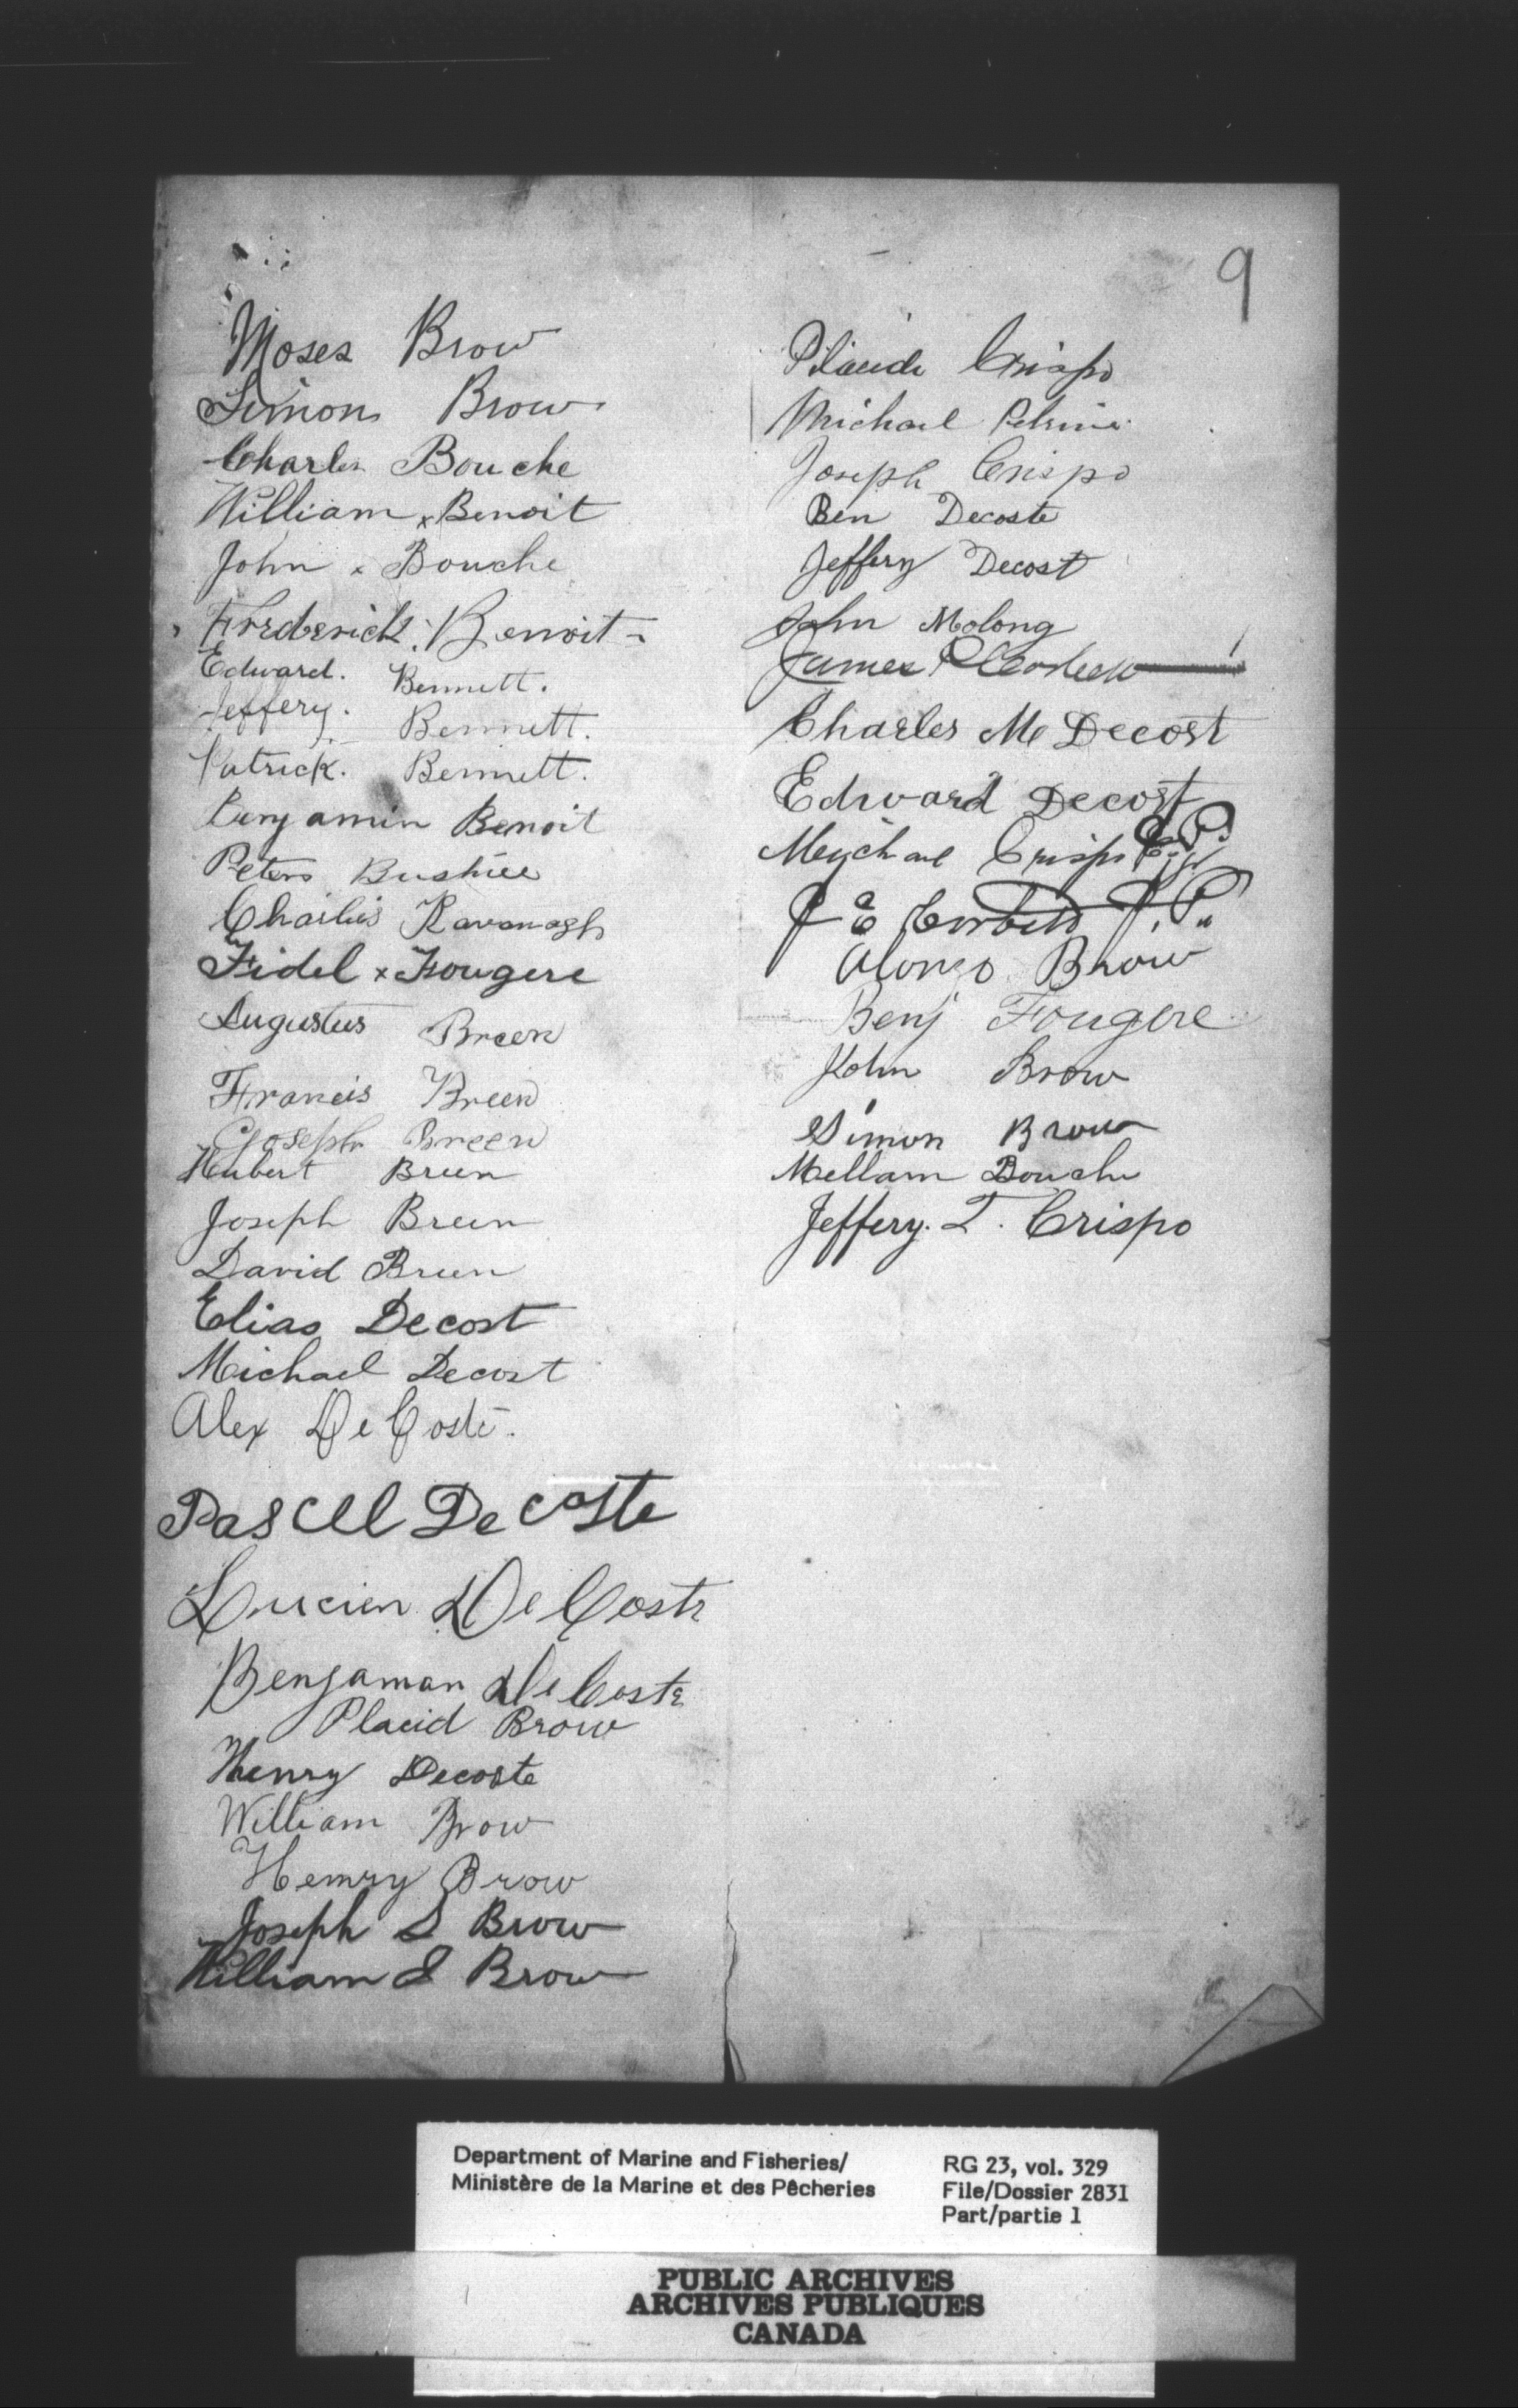 9
Moses Brow
Simon Brow
Charles Bouche
William x Benoit
John x Bouche
Frederick Benoit
Edward. Bennett.
Jeffery. Bennett.
Patrick. Bennett.
Benjamin Benoit
Peter
Charles Kavanagh
Fidel x Fougere
Augustus Breen
Francis Breen
Joseph Breen
Hubert Breen
Joseph Breen
David Breen
Elias Decost
Michael Decost
Alex DeCoste.
Pascal Decoste
Lucien DeCoste
Benjaman DeCoste
Placid Brow
Henry Decoste
William Brow
Hemry Brow
Joseph S Brow
William S Brow
Placide Crispo
Michael Petrine
Joseph Crispo
Ben Decoste
Jeffery Decost
John Molong
James P
Charles M Decost
Edward Decost
Crispo
J E Corbett J.P.
Alonzo Brow
Benj Fougere
John Brow
Simon Brow
Bouche
Jeffery. T. Crispo
Department of Marine and Fisheries/
Ministère de la Marine et des Pêcheries
RG 23, vol. 329
File/Dossier 2831
Part/partie 1
PUBLIC ARCHIVES
ARCHIVES PUBLIQUES
CANADA